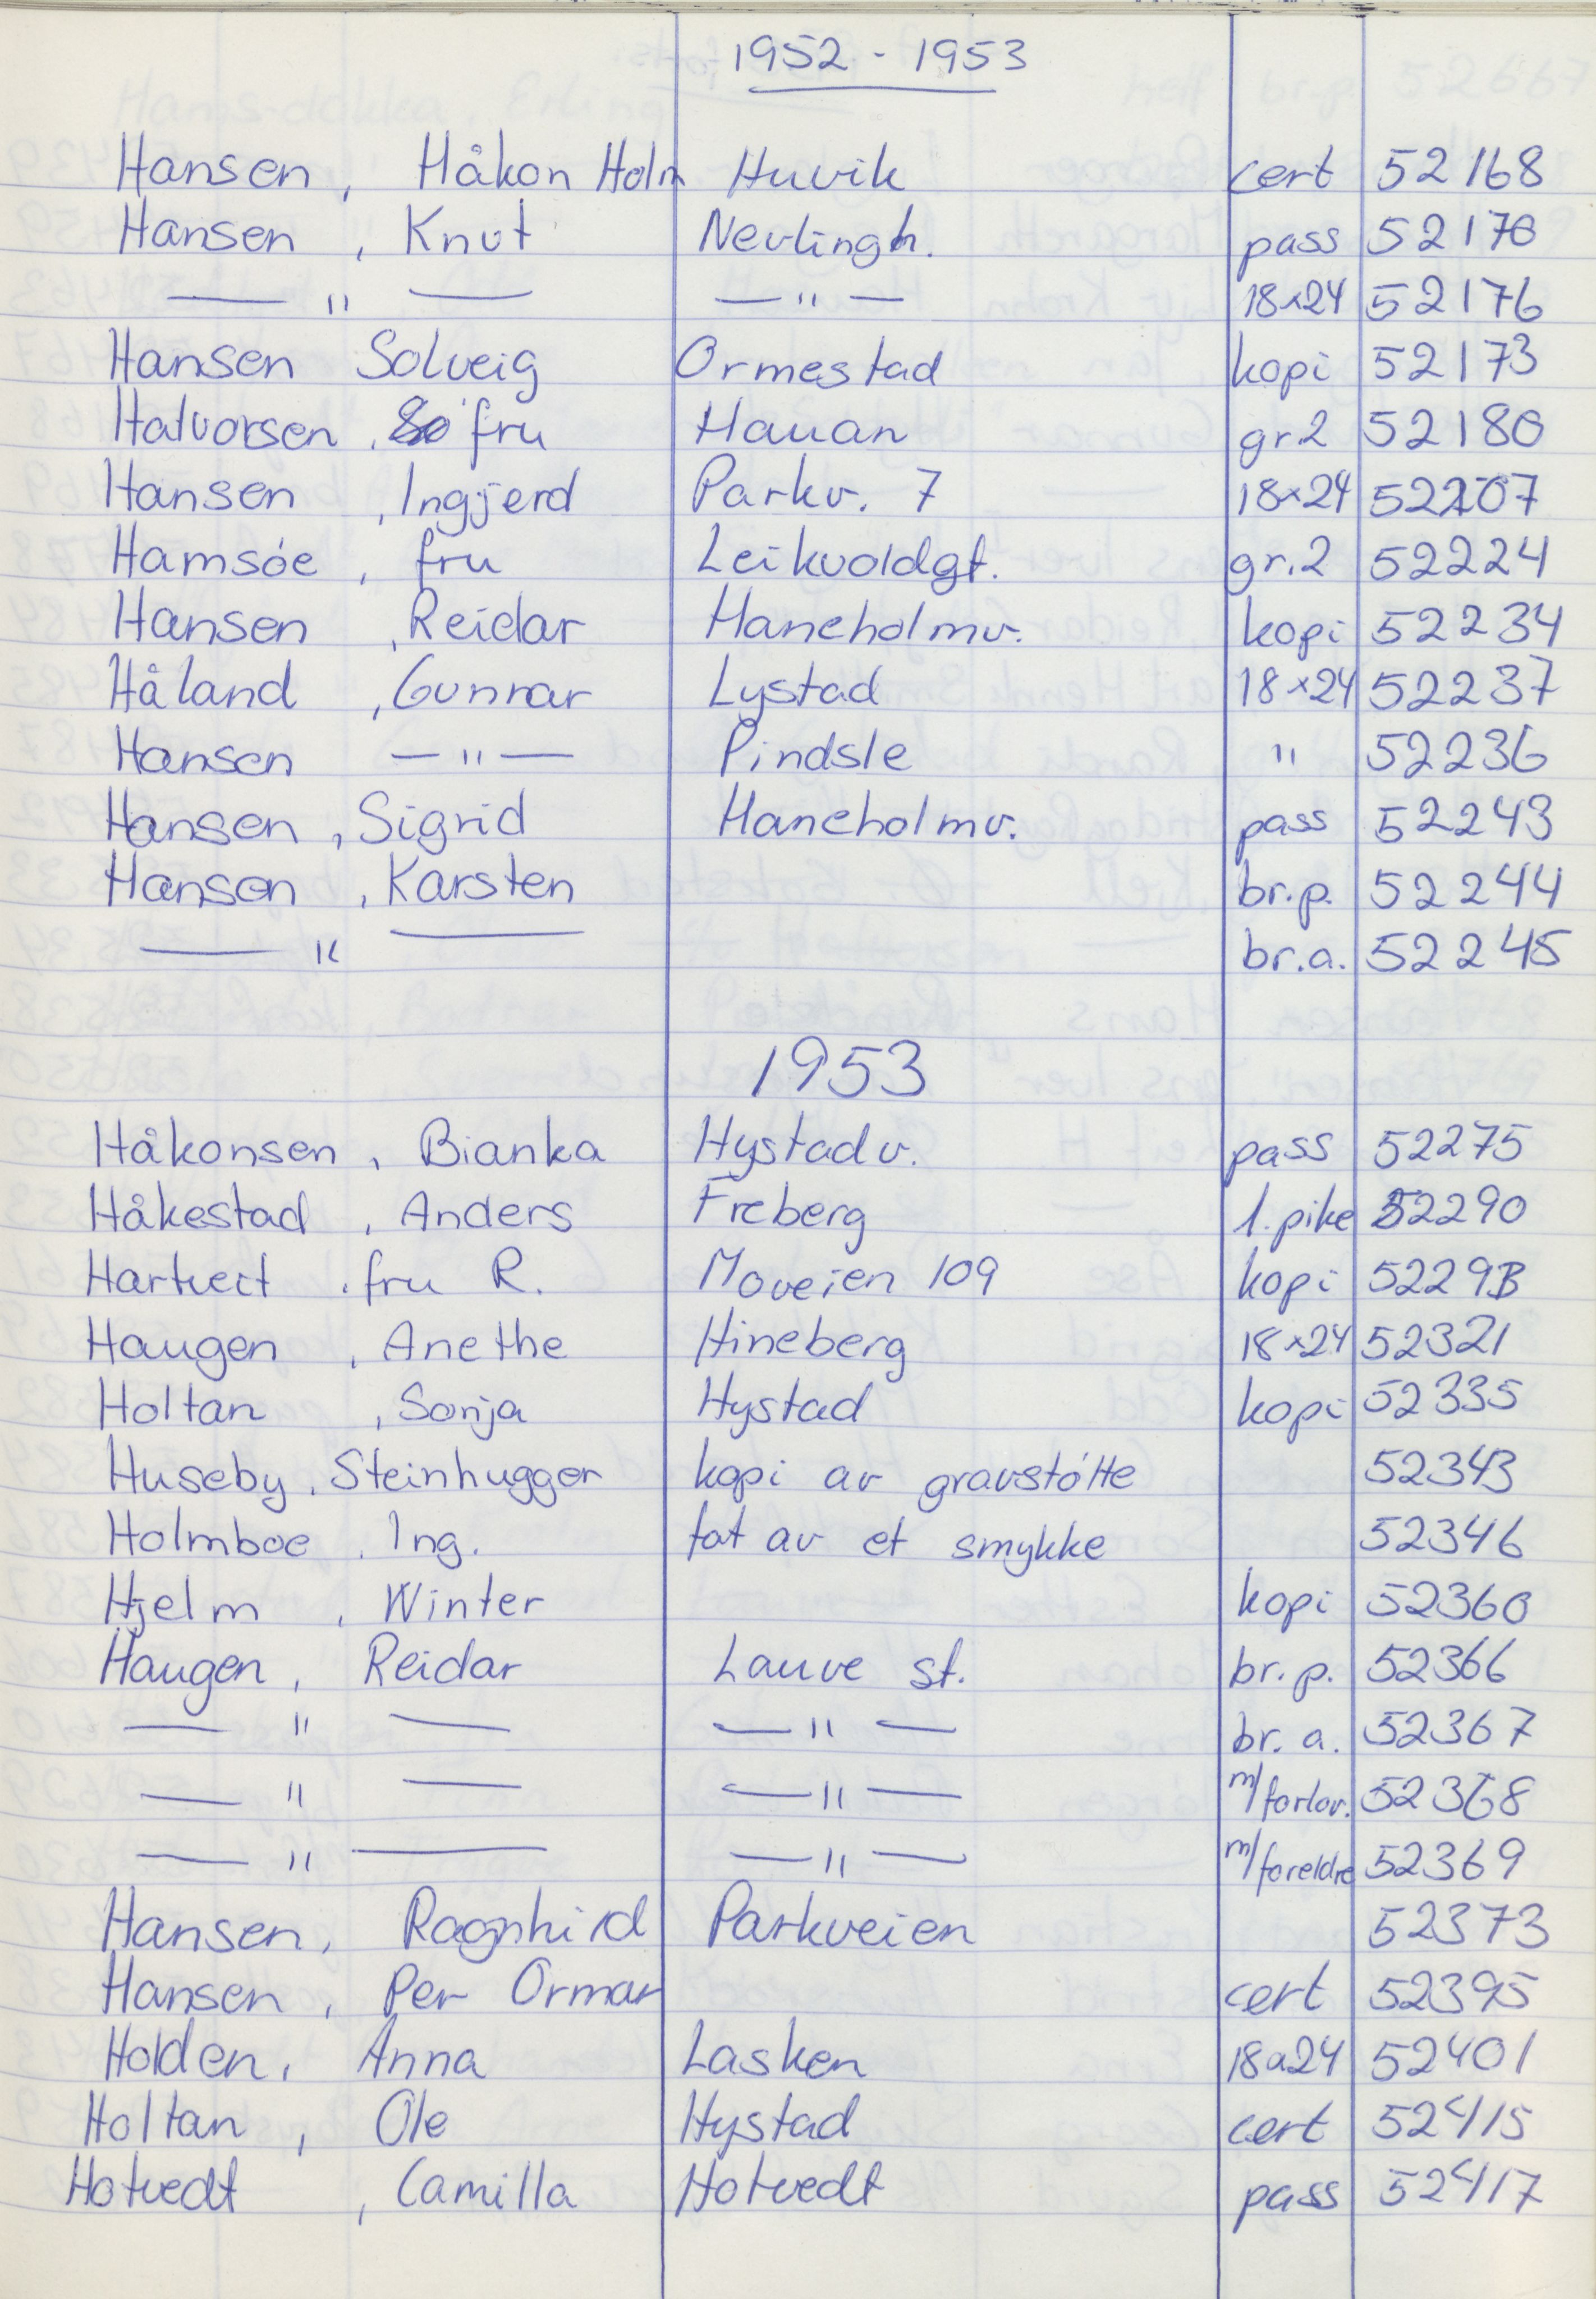 1952 - 1953
Hansen, Håkon Holm Huvik cert 52168
Hansen, Knut Nevlingh. pass 52170
— " — — " — 18x24 52176
Hansen Solveig Ormestad kopi 52173
Halvorsen, fru Hauan gr2 52180
Hansen, Ingjerd Parkv. 7 18x24 52207
Hamsóe, fru Leikvoldgt. gr.2 52224
Hansen, Reidar Haneholmv. kopi 52234
Håland, Gunnar Lystad 18x24 52237
Hansen — " — Pindsle " 52236
Hansen, Sigrid Haneholmv. pass 52243
Hansen, Karsten br.p. 52244
— " — br.a. 52245
1953
Håkonsen, Bianka Hystadv. pass 52275
Håkestad, Anders Freberg 1.pike 52290
Hartveit, fru R. Moveien 109 kopi 52293
Haugen, Anethe Hineberg 18x24 52321
Holtan, Sonja Hystad kopi 52335
Huseby, Steinhugger kopi av gravstótte 52343
Holmboe, Ing. fat av et smykke 52346
Hjelm, Winter kopi 52360
Haugen, Reidar Lauve st. br.p. 52366
— " — — " — br. a. 52367
— " — — " — m/forlov. 52368
— " — — " — m/foreldre 52369
Hansen, Ragnhild Parkveien 52373
Hansen, Per Ormar cert 52395
Holden, Anna Lasken 18a24 52401
Holtan, Ole Hystad cert 52415
Hotvedt, Camilla Hotvedt pass 52417